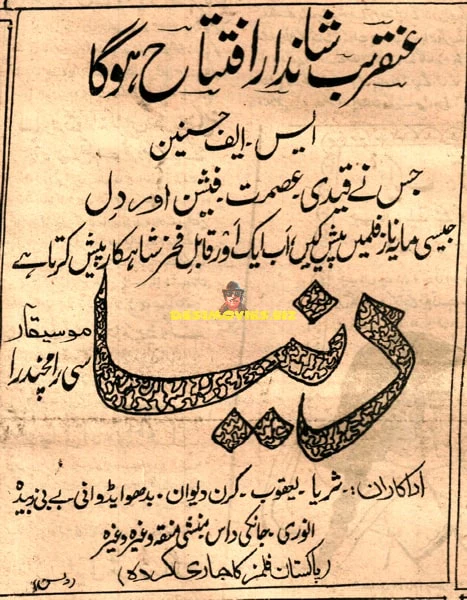 عنقریب شاندار افتتاح ہوگا
ایس۔ایف حسنین
جس نے قیدی۔عصمت۔فیشن اور دل
جیسی مایہ ناز فلمیں پیش کیں، اب ایک اور قابلِ فخر شاہکار پیش کرتا ہے
دنیا
موسیقار
سی رامچندرا
اداکاران:۔ ثریا۔یعقوب۔کرن دیوان۔بدھو ایڈوانی بے بی زبیدہ
انوری۔جانکی داس۔منشی منقہ وغیرہ وغیرہ
(پاکستان فلمز کا جاری کردہ)